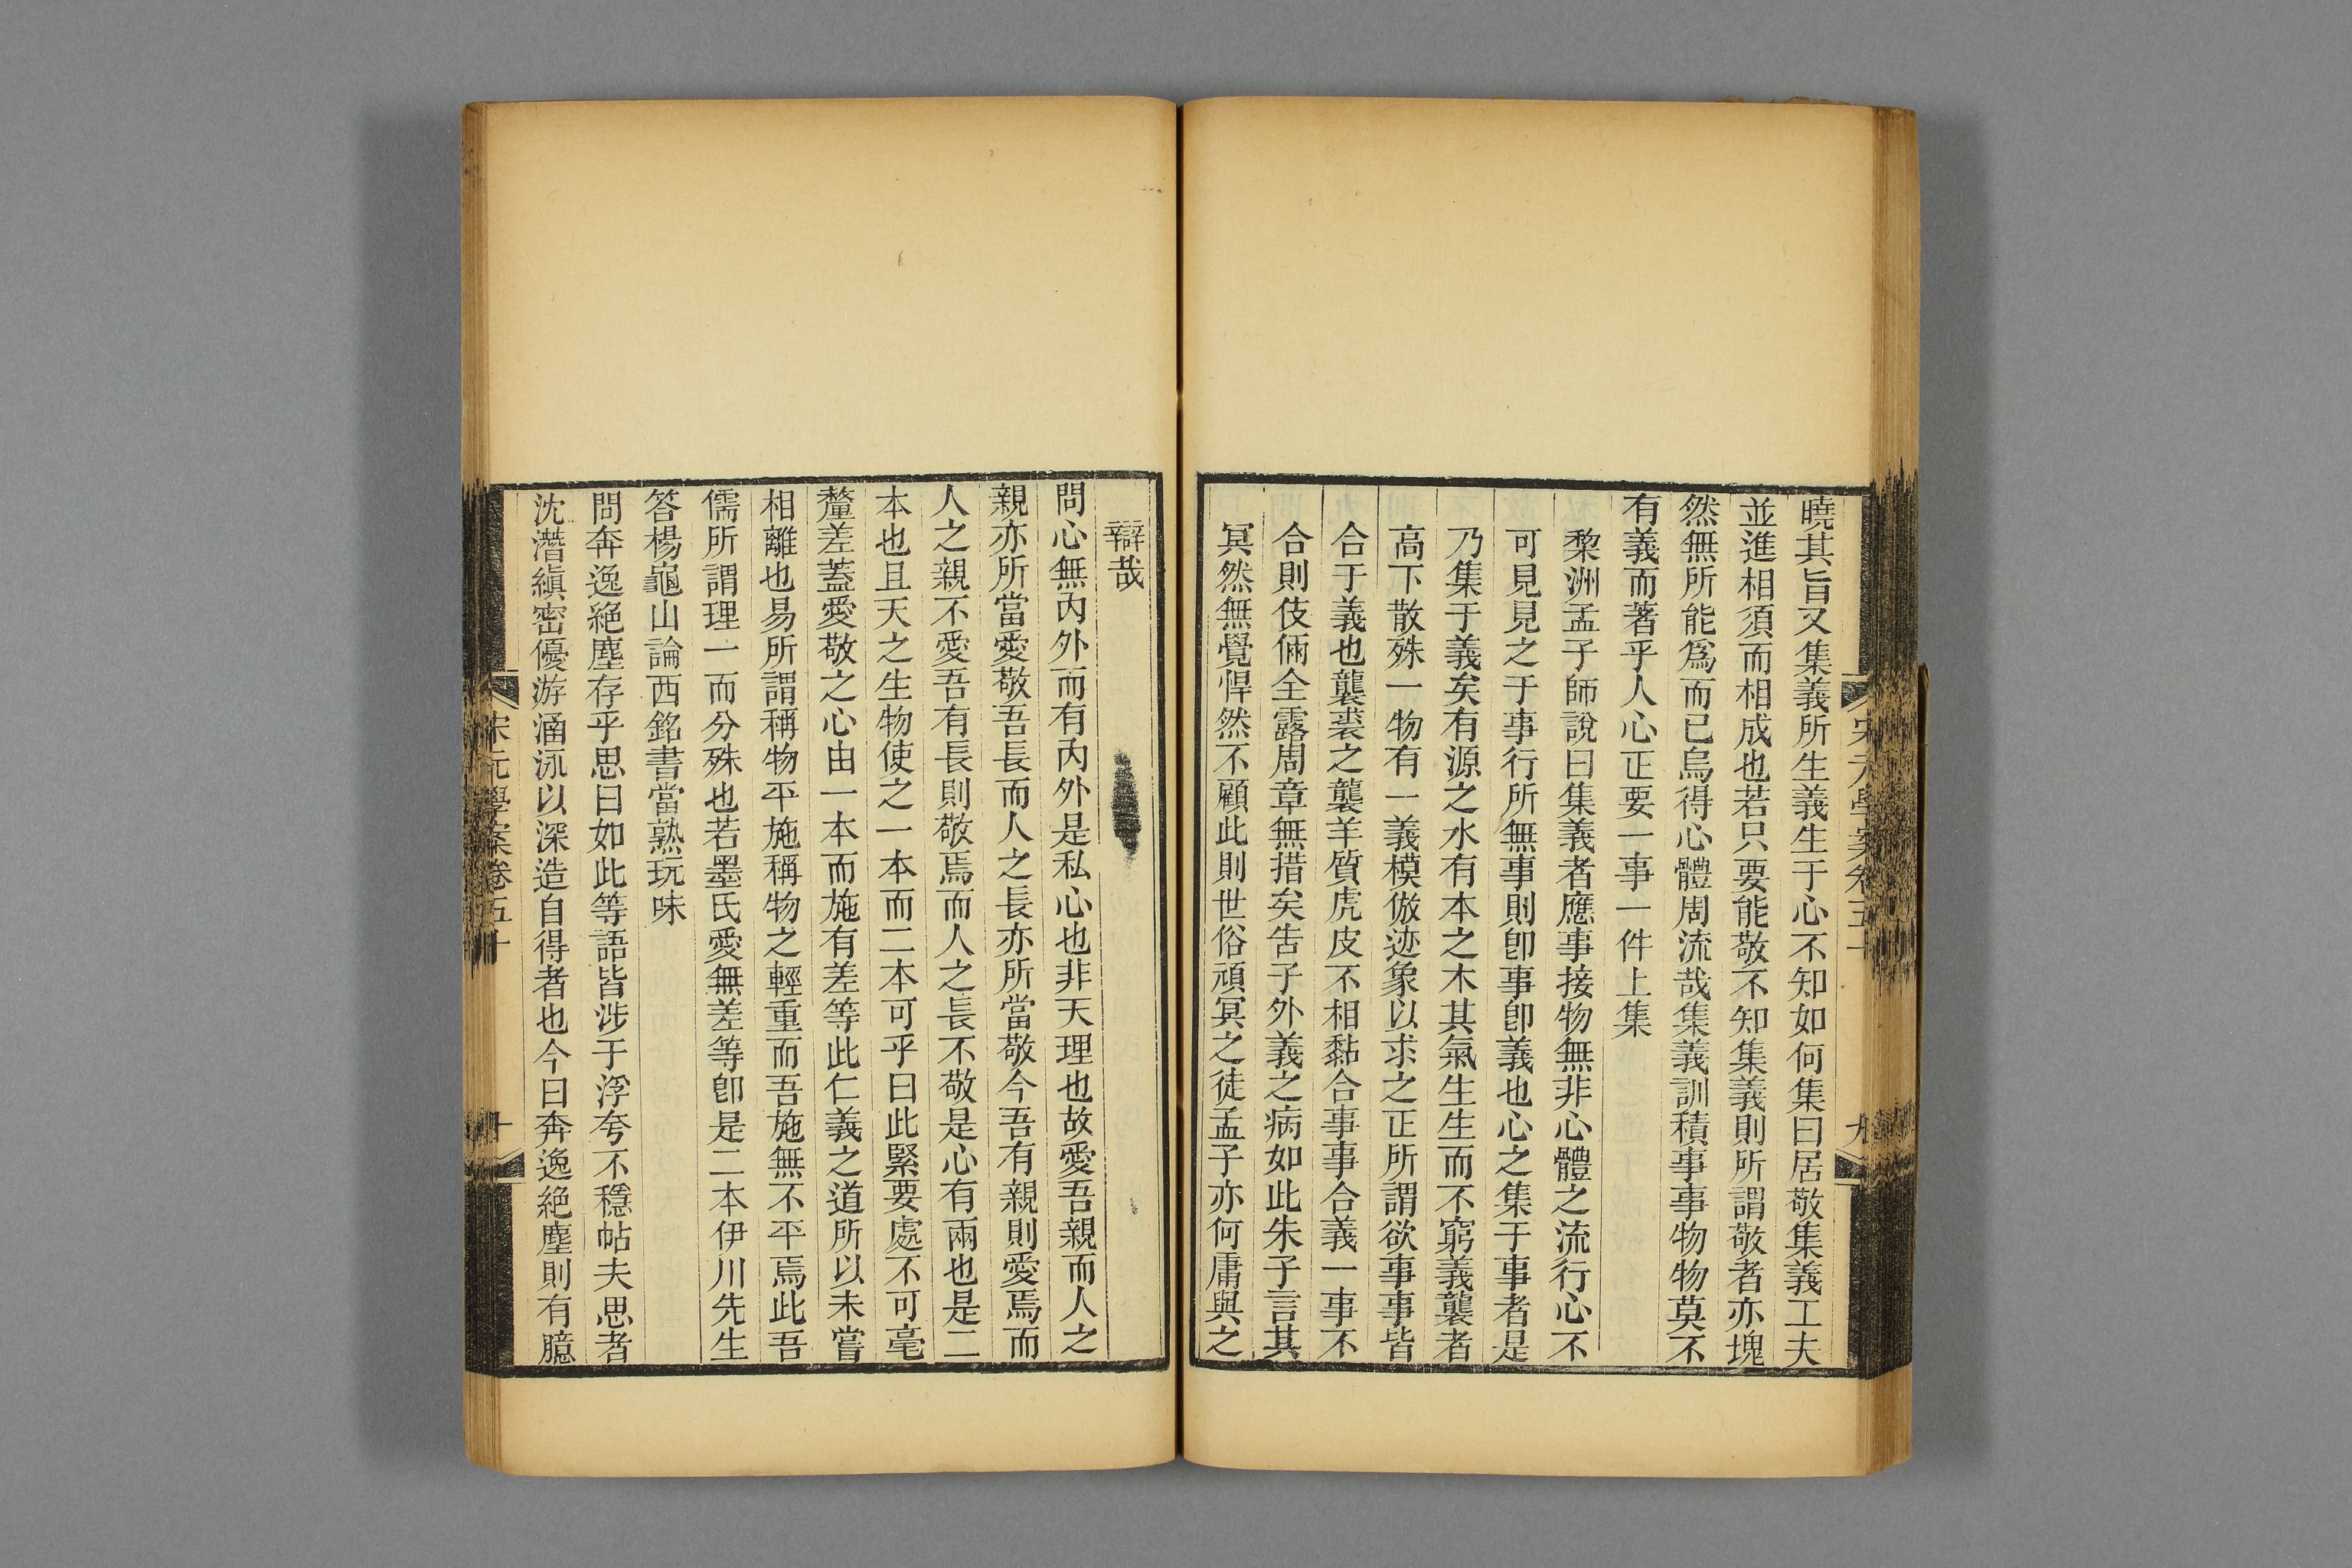 曉其旨又集義所生義生于心不知如何集曰居敬集義工夫
並進相須而相成也若只要能敬不知集義則所謂敬者亦塊
然無所能爲而已烏得心體周流哉集義訓積事事物物莫不
有義而著乎人心正要一事一件上集
黎洲孟子師說曰集義者應事接物無非心體之流行心不
可見見之于事行所無事則卽事卽義也心之集于事者是
乃集于義矣有源之水有本之木其氣生生而不窮義襲者
高下散殊一物有一義模倣迹象以求之正所謂欲事事皆
合于義也襲裘之襲羊質虎皮不相黏合事事合義一事不
合則伎倆全露周章無措矣告子外義之病如此朱子言其
冥然無覺悍然不顧此則世俗頑冥之徒孟子亦何庸與之
宋元學案卷五十
九
辯哉
問心無內外而有內外是私心也非天理也故愛吾親而人之
親亦所當愛敬吾長而人之長亦所當敬今吾有親則愛焉而
人之親不愛吾有長則敬焉而人之長不敬是心有兩也是二
本也且天之生物使之一本而二本可乎曰此緊要處不可毫
釐差蓋愛敬之心由一本而施有差等此仁義之道所以未嘗
相離也易所謂稱物平施稱物之輕重而吾施無不平焉此吾
儒所謂理一而分殊也若墨氏愛無差等卽是二本伊川先生
答楊龜山論西銘書當熟玩味
問奔逸絕塵存乎思曰如此等語皆涉于浮夸不穩帖夫思者
沈潛縝密優游涵泳以深造自得者也今曰奔逸絕塵則有臆
宋元學案卷五十
十